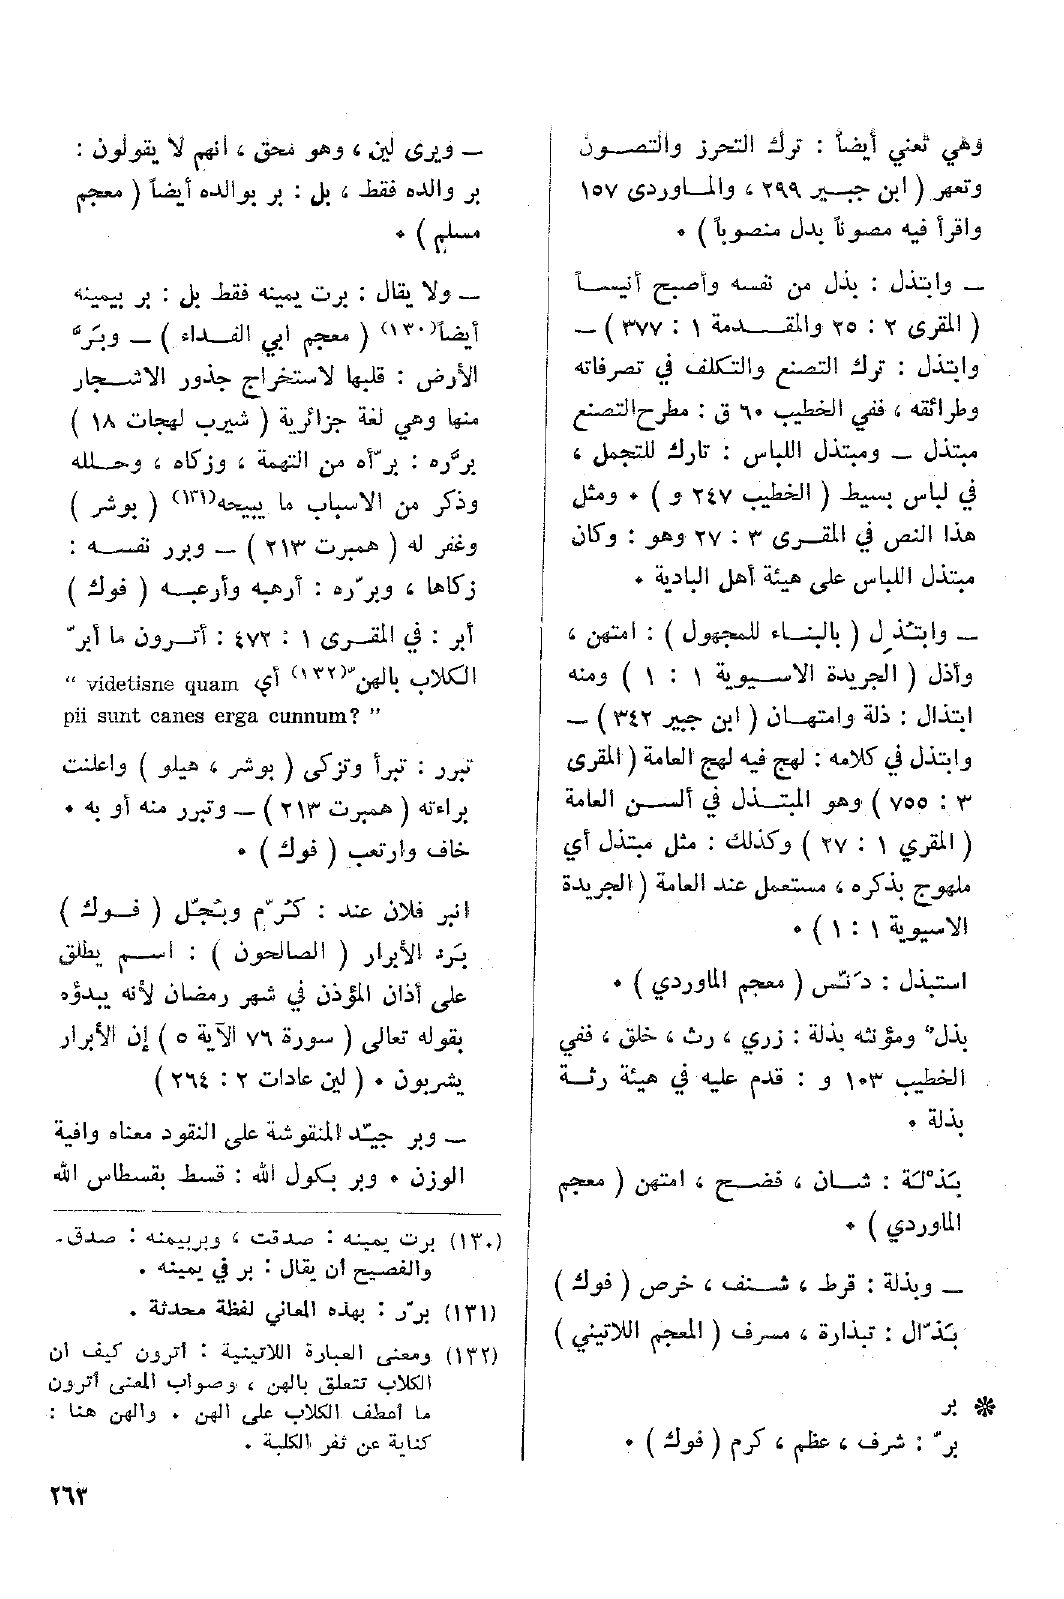 وهي تعني أيضاً : ترك التحرز والتصــون
وتعهر ( ابن جبــير ٢٩٩ ، والمــاوردى ١٥٧
واقرأ فيه مصوناً بدل منصوباً ) ٠
ــ وابتذل : بذل من نفسه وأصبح أنيســاً
( المقرى ٢ : ٢٥ والمقــدمة ١ : ٣٧٧ ) ــ
وابتذل : ترك التصنع والتكلف في تصرفاته
وطرائقه ، ففي الخطيب ٦٠ ق : مطرح التصنع
مبتذل ــ ومبتذل اللباس : تارك للتجمل ،
في لباس بسيط ( الخطيب ٢٤٧ و ) ٠ ومثل
هذا النص في المقــرى ٣ : ٢٧ وهو : وكان
مبتذل اللباس على هيئة أهل البادية ٠
ــ وابتُذِل ( بالبنــاء للمجهول ) : امتهن ،
وأذل ( الجريدة الاســيوية ١ : ١ ) ومنه
ابتذال : ذلة وامتهــان ( ابن جبير ٣٤٢ ) ــ
وابتذل في كلامه : لهج فيه لهج العامة ( المقرى
٣ : ٧٥٥ ) وهو المبتــذل في ألســن العامة
( المقري ١ : ٢٧ ) وكذلك : مثل مبتذل أي
ملهوج بذكره ، مستعمل عند العامة ( الجريدة
الاسيوية ١ : ١ ) ٠
استبذل : دَنَّس ( معجم الماوردي ) ٠
بذل ومؤنثه بذلة : زري ، رث ، خلق ، ففي
الخطيب ١٠٣ و : قدم عليه في هيئة رثــة
بذلة ٠
بَذْلَة : شــان ، فضــح ، امتهن ( معجم
الماوردي ) ٠
ــ وبذلة : قرط ، شــنف ، خرص ( فوك )
بَذّال : تبذارة ، مسرف ( المعجم اللاتيني )
❋ بر
برّ : شرف ، عظم ، كرم ( فوك ) ٠
ــ ويرى لين ، وهو محق ، انهم لا يقولون :
بر والده فقط ، بل : بر بوالده أيضاً ( معجم
مسلم ) ٠
ــ ولا يقال : برت يمينه فقط بل : بر بيمينه
أيضاً(١٣٠) ( معجم ابي الفــداء ) ــ وبَرَّ
الأرض : قلبها لاستخراج جذور الاشــجار
منها وهي لغة جزائرية ( شيرب لهجات ١٨ )
برّره : برّأه من التهمة ، وزكاه ، وحــلله
وذكر من الاسباب ما يبيحه(١٣١) ( بوشر )
وغفر له ( همبرت ٢١٣ ) ــ وبرر نفســه :
زكاها ، وبرّره : أرهبه وأرعبــه ( فوك )
أبر : في المقــرى ١ : ٤٧٢ : أتــرون ما أبرّ
الكلاب بالهنّ(١٣٢) أي " videtisne quam
pii sunt canes erga cunnum? "
تبرر : تبرأ وتزكى ( بوشر ، هيلو ) واعلنت
براءته ( همبرت ٢١٣ ) ــ وتبرر منه أو به ٠
خاف وارتعب ( فوك ) ٠
انبر فلان عند : كُرِّم وبُجِّل ( فــوك )
بَرد الأبرار ( الصالحون ) : اســم يطلق
على أذان المؤذن في شهر رمضان لأنه يبدؤه
بقوله تعالى ( سورة ٧٦ الآية ٥ ) إن الأبرار
يشربون ٠ ( لين عادات ٢ : ٢٦٤ )
ــ وبر جيّد المنقوشة على النقود معناه وافية
الوزن ٠ وبر بكول الله : قسط بقسطاس الله
(١٣٠) برت يمينه : صدقت ، وبربيمنه : صدق٠
والفصيح ان يقال : بر في يمينه ٠
(١٣١) برّر : بهذه المعاني لفظة محدثة ٠
(١٣٢) ومعنى العبارة اللاتينية : أترون كيف ان
الكلاب تتعلق بالهن ، وصواب المعنى أترون
ما أعطف الكلاب على الهن ٠ والهن هنا :
كناية عن ثفر الكلبة ٠
٢٦٣